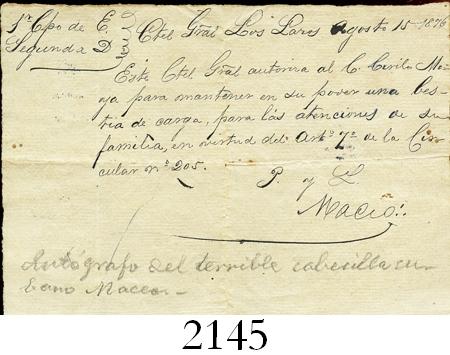 1er Cpo de E.
Segunda D.
Ctel Gral Los Lazos Agosto 15-1876
Este Ctel Gral autoriza al C. Cirilo Mo-
ya para mantener en su poder una bes-
tia de carga, para las atenciones de su
familia, en virtud del Arto. 7o de la Cir-
cular no. 205.
P. y L.
Maceo.
Autógrafo del terrible cabesilla cu-
bano Maceo.-
2145